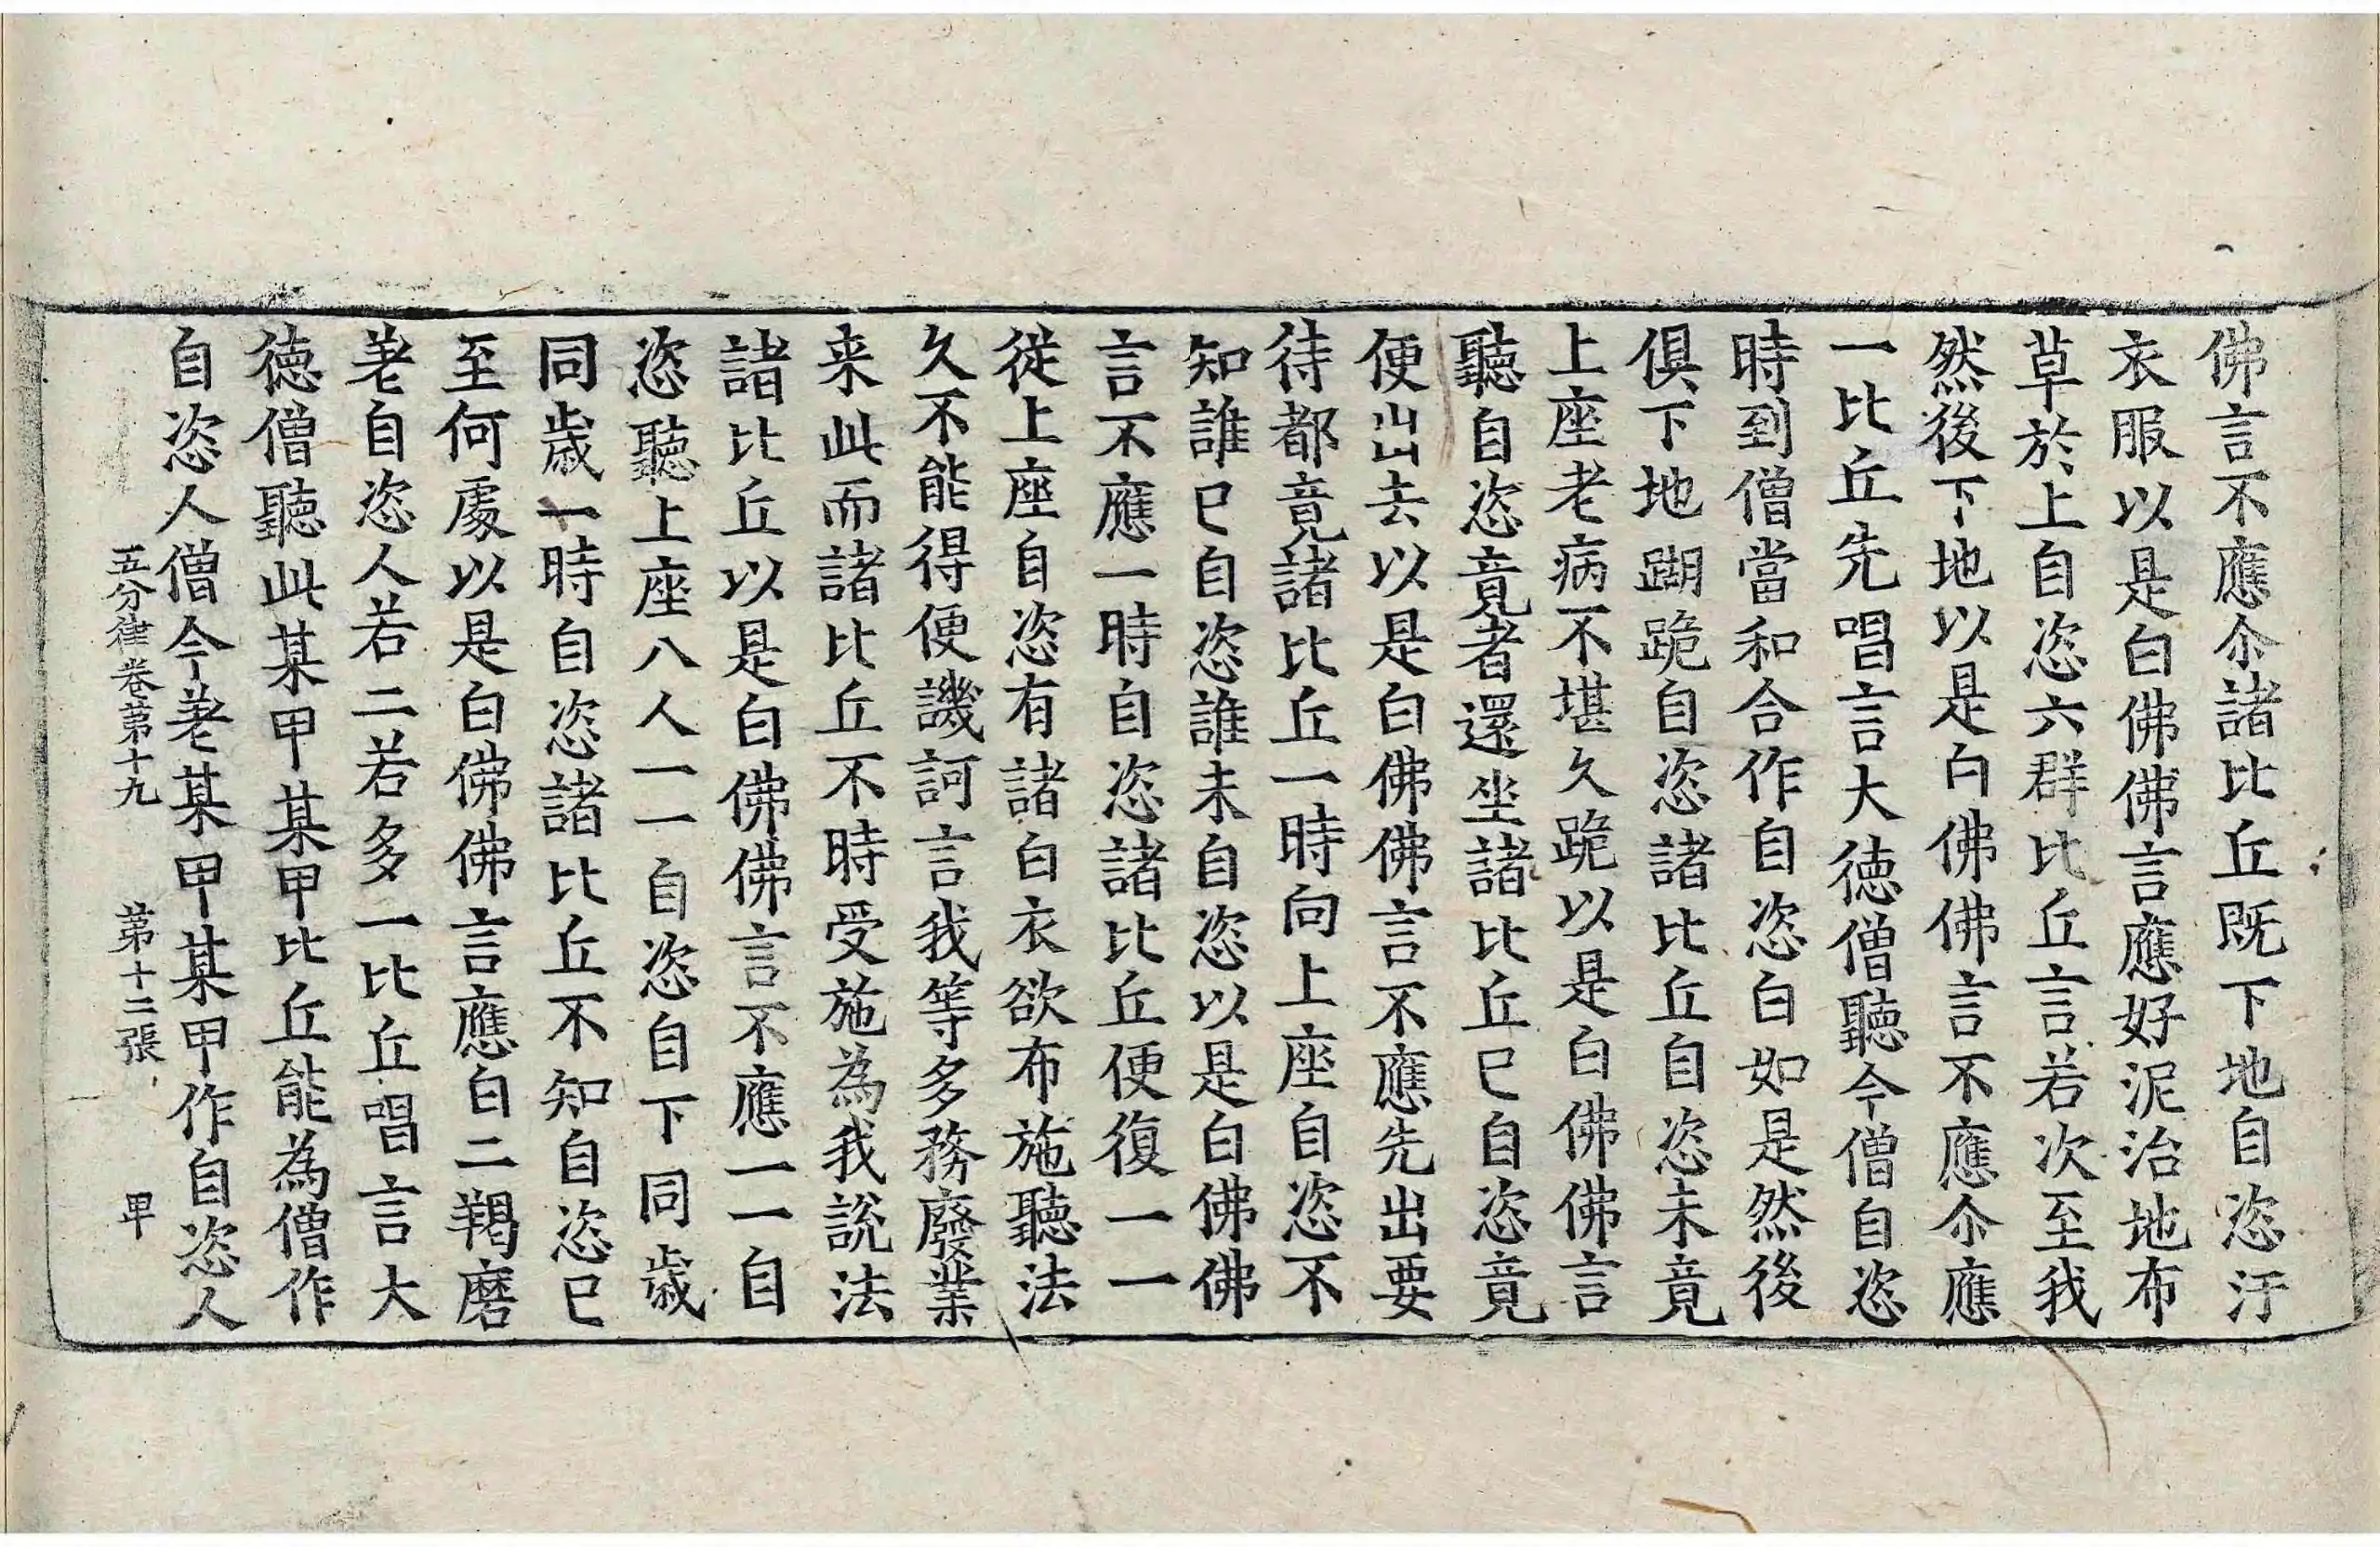 佛言不應尒諸比丘既下地自恣汙
衣服以是白佛佛言應好泥治地布
草於上自恣六群比丘言若次至我
然後下地以是白佛佛言不應尒應
一比丘先唱言大徳僧聽今僧自恣
時到僧當和合作自恣白如是然後
俱下地䠒跪自恣諸比丘自恣未竟
上座老病不堪久跪以是白佛佛言
聽自恣竟者還坐諸比丘已自恣竟
便出去以是白佛佛言不應先出要
待都竟諸比丘一時向上座自恣不
知誰已自恣誰未自恣以是白佛佛
言不應一時自恣諸比丘便復一一
從上座自恣有諸白衣欲布施聽法
久不能得便譏訶言我等多務廢業
来此而諸比丘不時受施為我説法
諸比丘以是白佛佛言不應一一自
恣聽上座八人一一自恣自下同歳
同歳一時自恣諸比丘不知自恣已
至何處以是白佛佛言應白二羯磨
差自恣人若二若多一比丘唱言大
徳僧聽此某甲某甲比丘能為僧作
自恣人僧今差某甲某甲作自恣人
五分律卷第十九　第十二張　甲